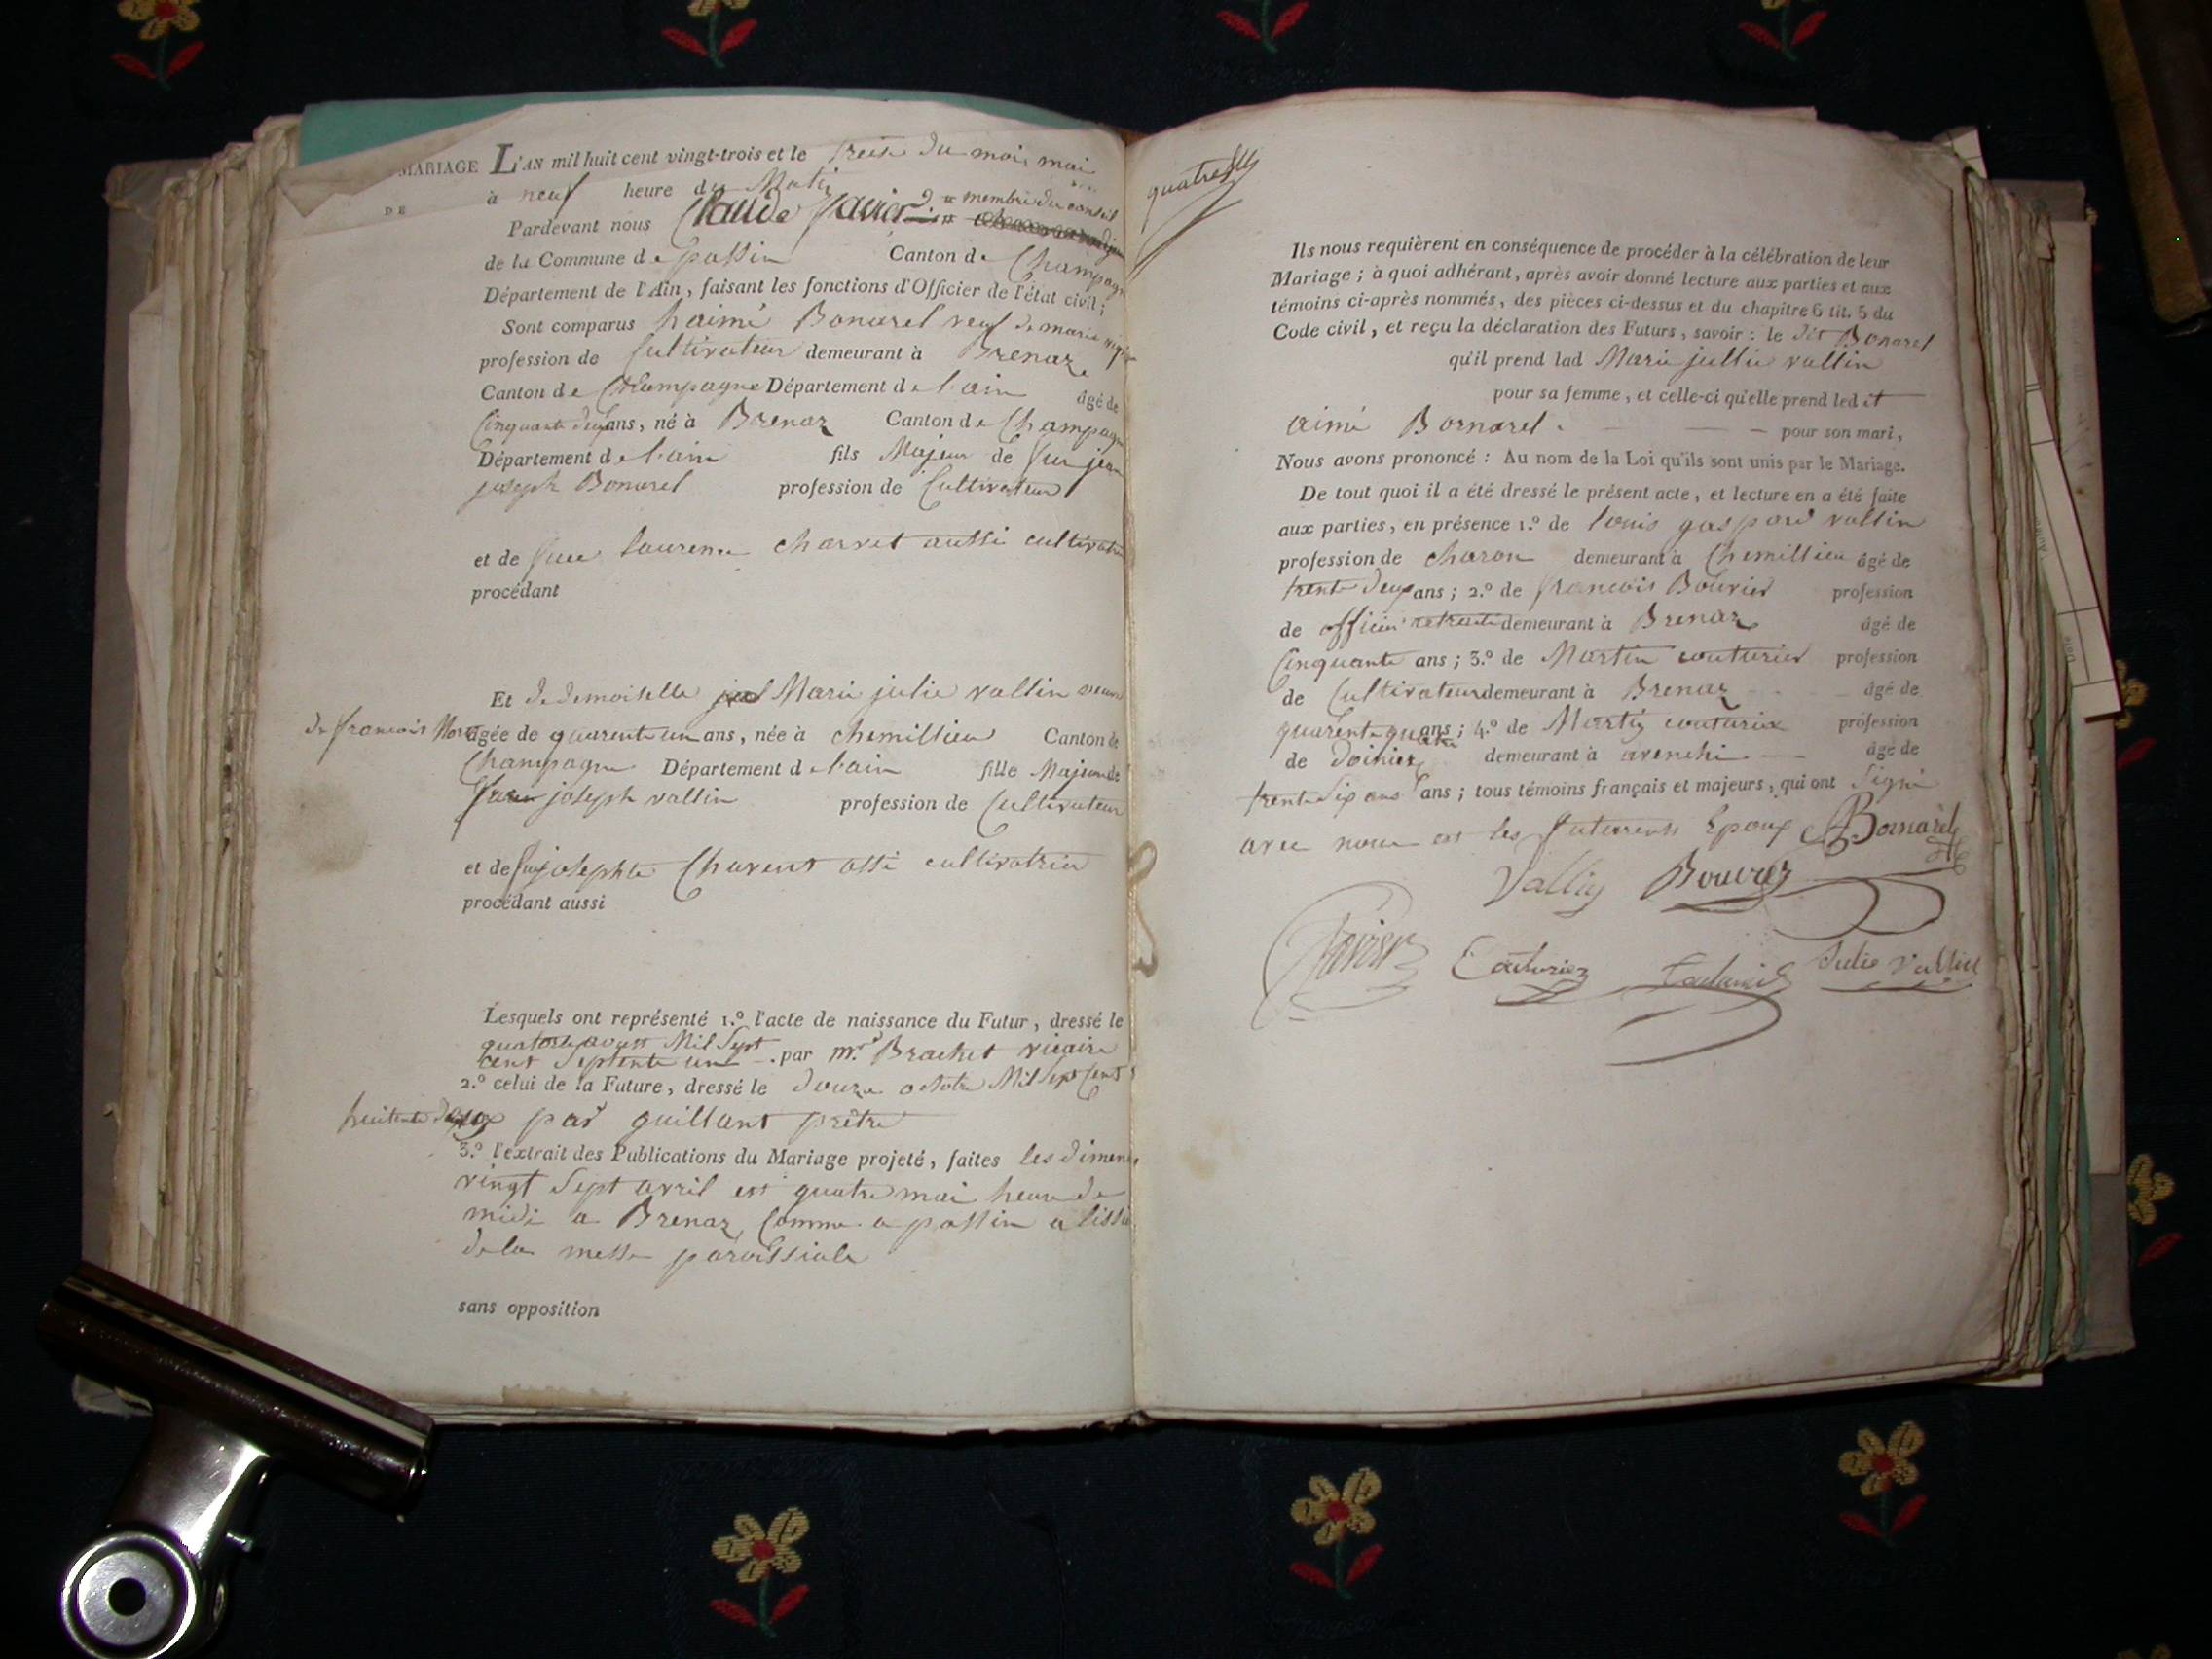 MARIAGE
DE
L'AN mil huit cent vingt-trois et le treise du mois mai
à neuf heure du Matin
Pardevant nous Claude membre du conseil
de la Commune de passin Canton de Champagne
Département de l'Ain, faisant les fonctions d'Officier de l'état civil;
Sont comparus haimé Bonarel veuf de marie
profession de Cultivateur demeurant à Brenaz
Canton de Champagne Département de l'ain âgé de
Cinquante deux ans, né à Brenaz Canton de Champagne
Département de l'ain fils Majeur de feu jean
joseph Bonarel profession de Cultivateur
et de feue laurence charvet aussi cultivatrice
procédant
Et de demoiselle Marie julie vallin veuve
de francois agée de quarente un ans, née à chemillieu Canton de
Champagne Département de l'ain fille Majeure de
joseph vallin profession de Cultivateur
et de josephte Charvet ossi cultivatrice
procédant aussi
Lesquels ont représenté 1.º l'acte de naissance du Futur, dressé le
quatorse avust Mil Sept
cent Septente un par mr. Brachet vicaire
2.º celui de la Future, dressé le douze octobre Mil Sept Cent
huitente deux par guillant prêtre
3.º l'extrait des Publications du Mariage projeté, faites les dimenche
vingt Sept avril est quatre mai heure de
midi a Brenaz, Comme a passin a lissue
de la messe paroissiale
sans opposition
quatre
Ils nous requièrent en conséquence de procéder à la célébration de leur
Mariage; à quoi adhérant, après avoir donné lecture aux parties et aux
témoins ci-après nommés, des pièces ci-dessus et du chapitre 6 tit. 5 du
Code civil, et reçu la déclaration des Futurs, savoir: le dit Bonarel
qu'il prend lad Marie jullie vallin
pour sa femme, et celle-ci qu'elle prend led it
aimé Bornarel. pour son mari,
Nous avons prononcé: Au nom de la Loi qu'ils sont unis par le Mariage.
De tout quoi il a été dressé le présent acte, et lecture en a été faite
aux parties, en présence 1.º de louis gaspard vallin
profession de charon demeurant à Chemillieu âgé de
trente deux ans; 2.º de francois Bouvier profession
de officier retraité demeurant à Brenaz âgé de
Cinquante ans; 3.º de Martin couturier profession
de Cultivateur demeurant à Brenaz âgé de
quarente quatre ans; 4.º de Martin couturier profession
de demeurant à âgé de
trente Six ans ans; tous témoins français et majeurs, qui ont Signé
avec nous est les futurents Epoux Bornarel
Vallin Bouvier
Couturier Couturier Julie Vallin